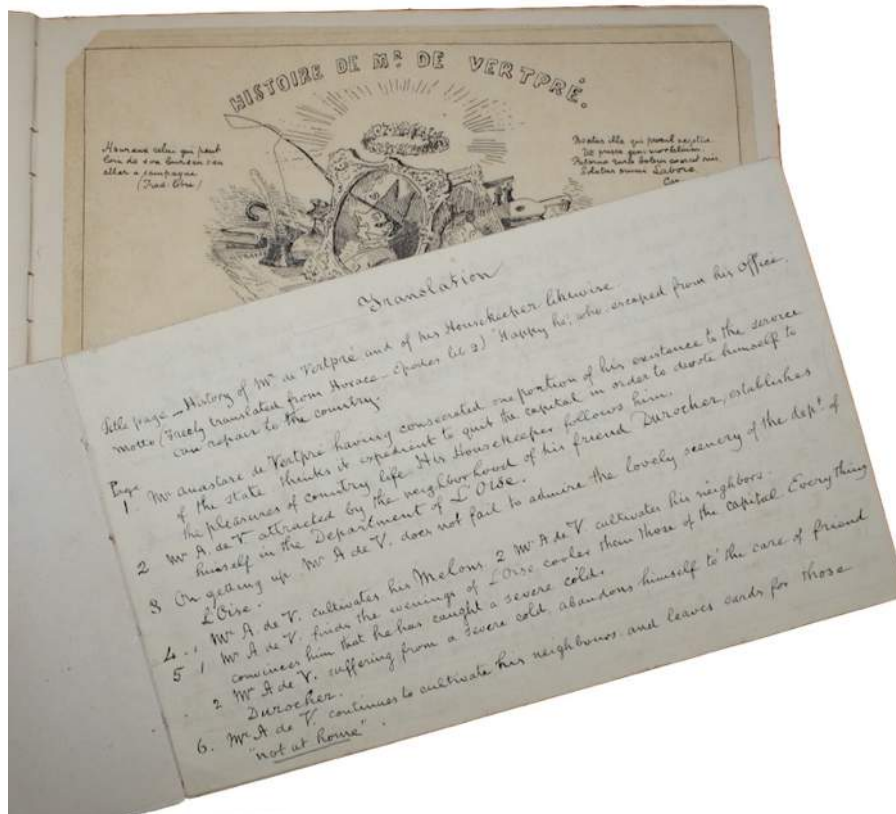 HISTOIRE DE MR. DE VERTPRÉ.
Heureux celui qui peut
loin de son bureau s'en
aller a campagne
(Trad. libre)
Beatus ille qui procul negotiis
Ut prisca gens mortalium
Paterna rura bobus exercet suis
Solutus omni Labore
Translation
Title page — History of Mr de Vertpré and of his Housekeeper likewise.
motto (Freely translated from Horace — Epodes lib 2) "Happy he, who, escaped from his office,
can repair to the country.
Page
1. Mr Anastase de Vertpré having consecrated one portion of his existence to the service
of the state thinks it expedient to quit the capital in order to devote himself to
the pleasures of country life. His Housekeeper follows him.
2 Mr A. de V attracted by the neighborhood of his friend Durocher, establishes
himself in the Department of L'Oise.
3 On getting up Mr A de V. does not fail to admire the lovely scenery of the dept. of
L'Oise.
4. 1 Mr A. de V. cultivates his Melons. 2 Mr A de V cultivates his neighbors.
5 1 Mr A de V. finds the evenings of L'Oise cooler than those of the capital. Everything
convinces him that he has caught a severe cold.
2 Mr A de V. suffering from a severe cold, abandons himself to the care of friend
Durocher.
6. Mr A de V. continues to cultivate his neighbours and leaves cards for those
"not at home".